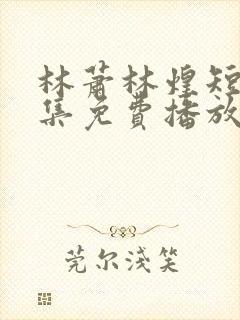 林蕭林煌短
集免費播放
莞尔浅笑